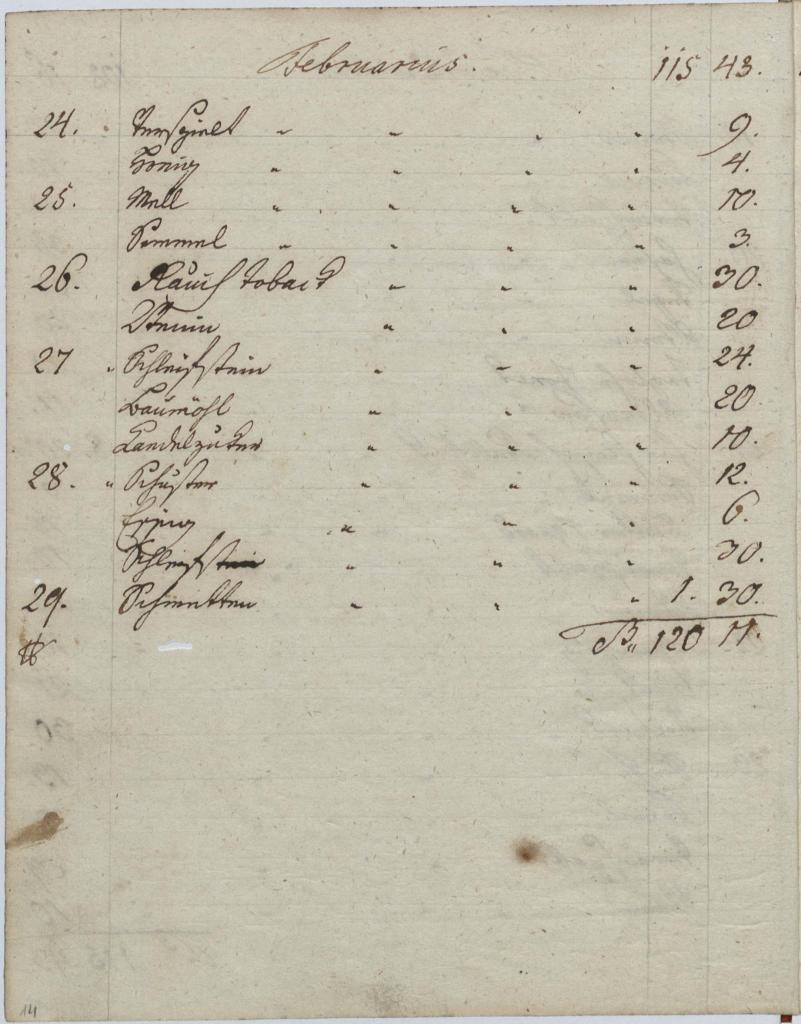 Februarius. 115 43.
24. Verspielt " " " " 9.
" " " " 4.
25. Mell " " " " 10.
Semmel " " " " 3.
26. Rauch toback " " " 30.
" " " 20
27 " Schleifstein " " " 24.
Baumöhl " " " 20
Kandelzuker " " " 10.
28. " Schuster " " " 12.
" " " 6.
Schleifstein " " " 30.
29. Schmetten " " " 1. 30.
120 11.
14